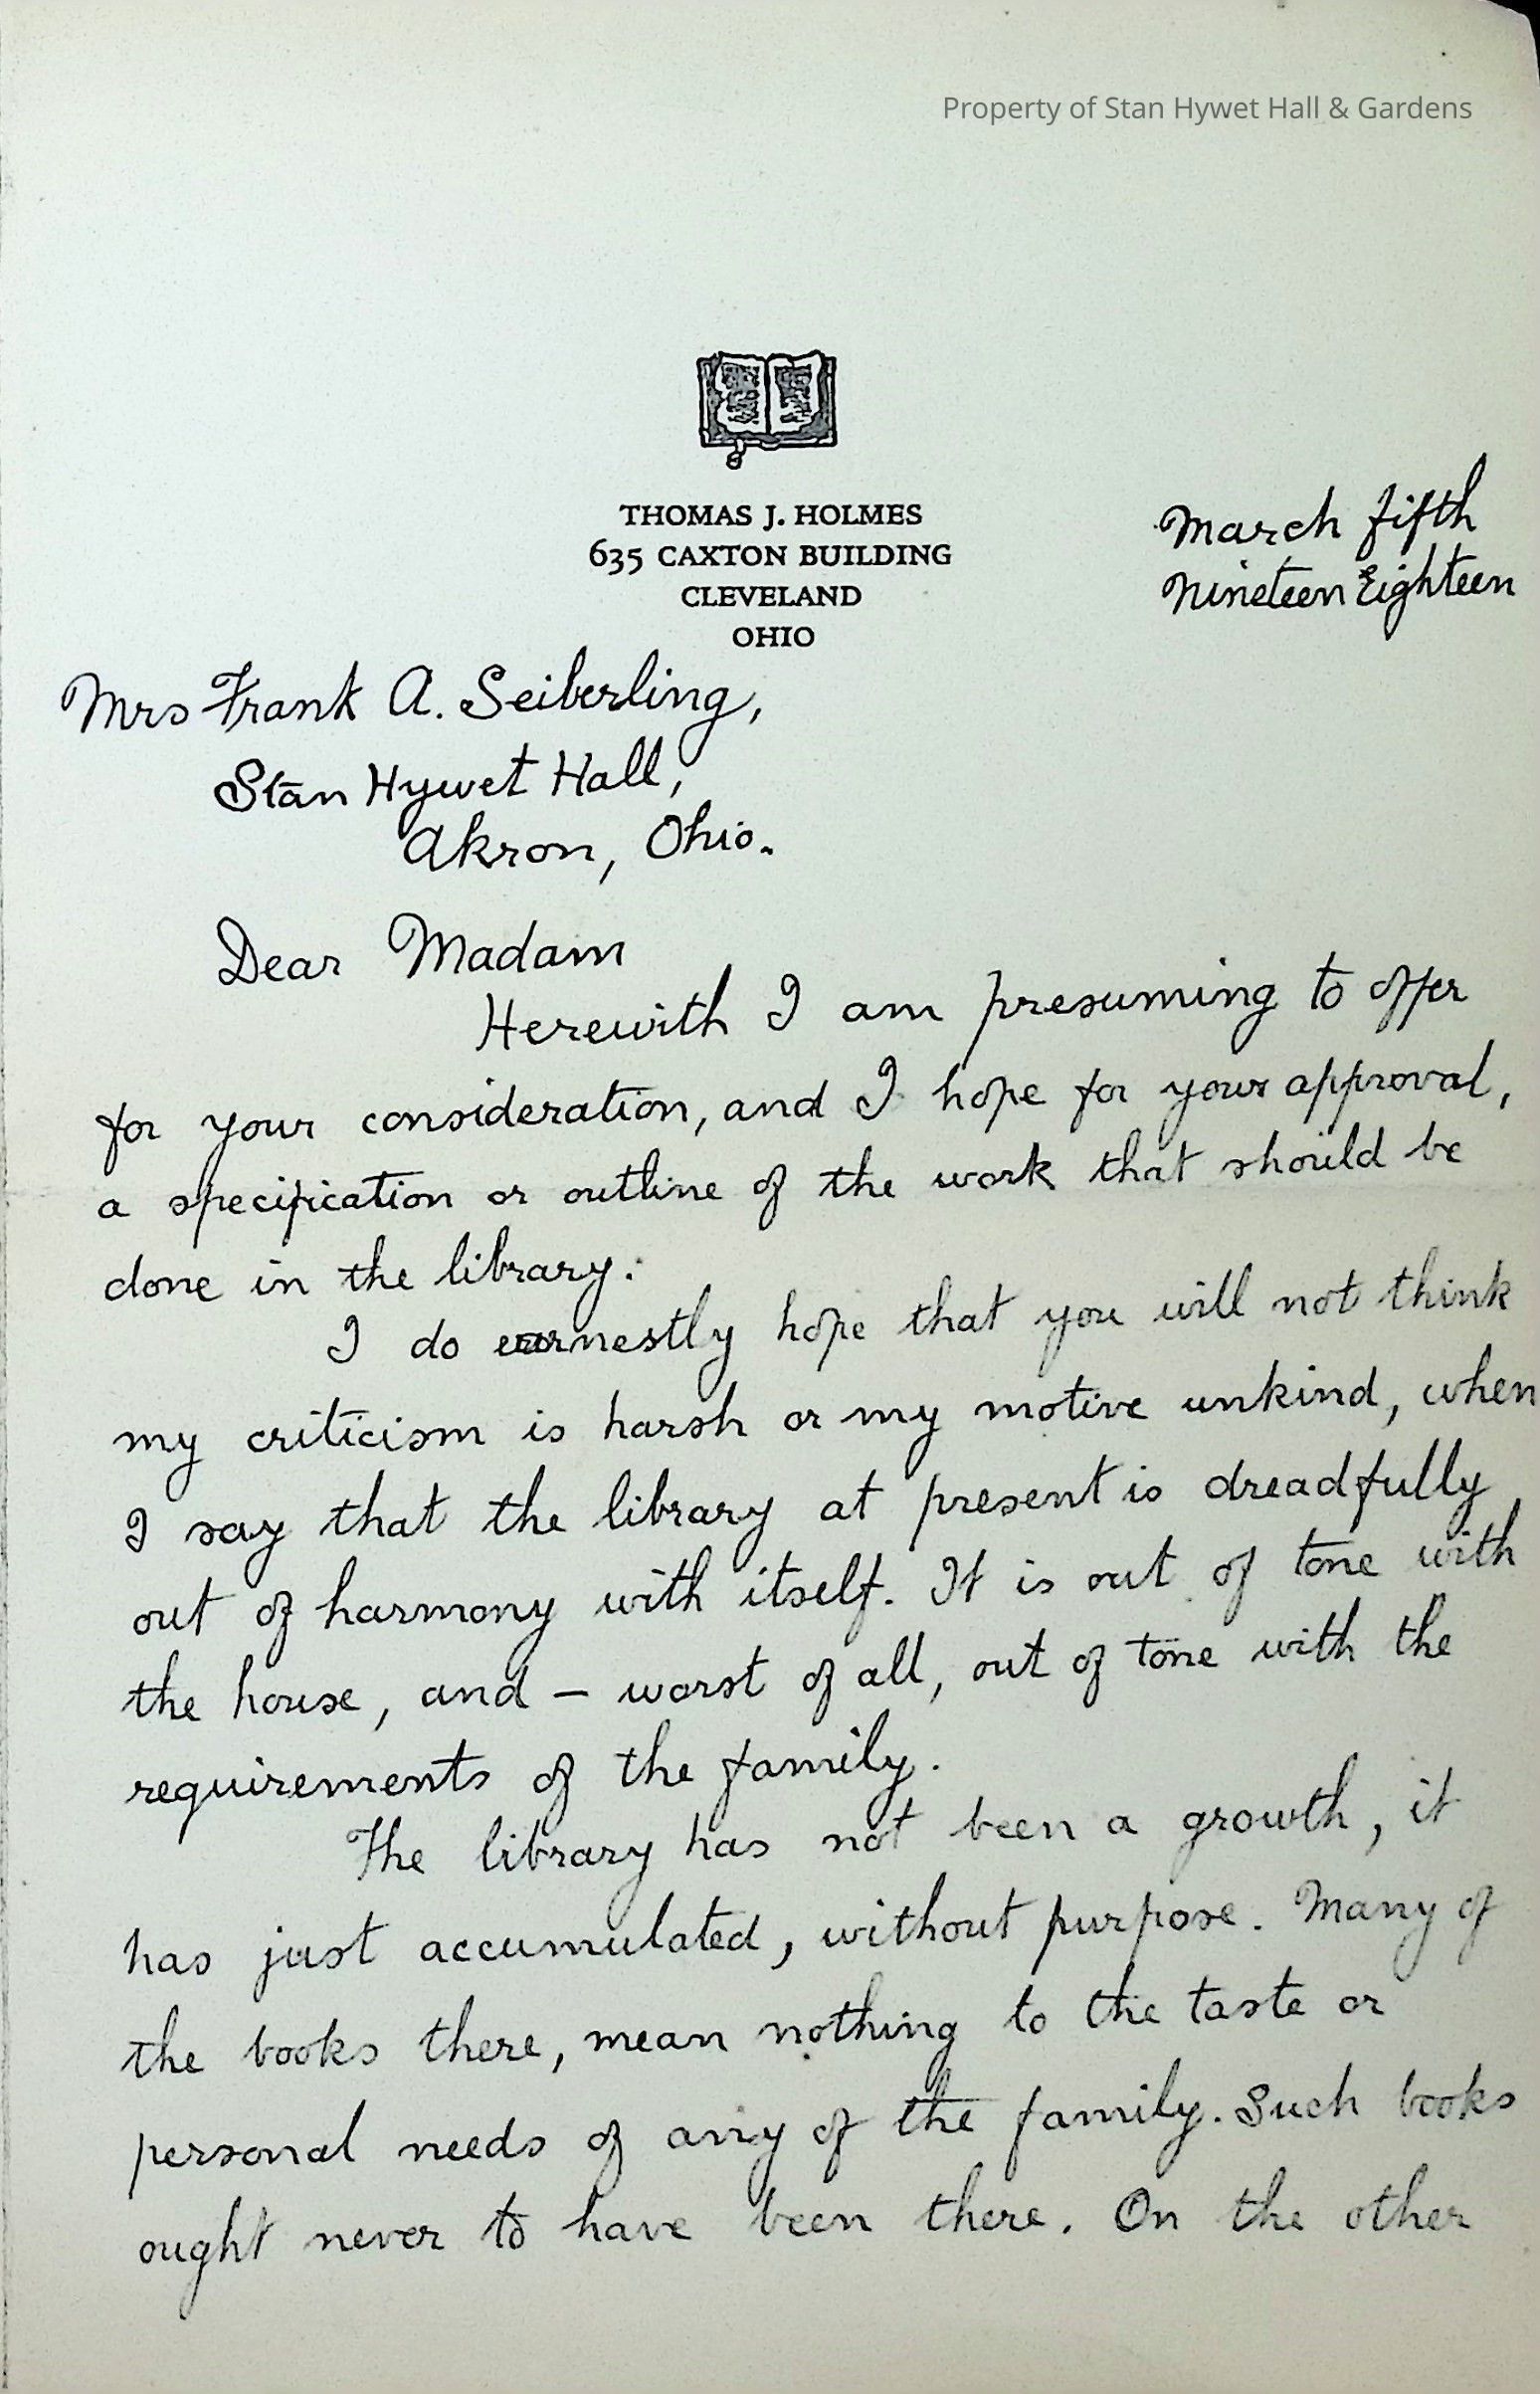 Property of Stan Hywet Hall & Gardens
THOMAS J. HOLMES
635 CAXTON BUILDING
CLEVELAND
OHIO
March fifth
Nineteen Eighteen
Mrs Frank A. Seiberling,
Stan Hywet Hall,
Akron, Ohio.
Dear Madam
Herewith I am presuming to offer
for your consideration, and I hope for your approval,
a specification or outline of the work that should be
done in the library.
I do earnestly hope that you will not think
my criticism is harsh or my motive unkind, when
I say that the library at present is dreadfully
out of harmony with itself. It is out of tone with
the house, and – worst of all, out of tone with the
requirements of the family.
The library has not been a growth, it
has just accumulated, without purpose. Many of
the books there, mean nothing to the taste or
personal needs of any of the family. Such books
ought never to have been there. On the other